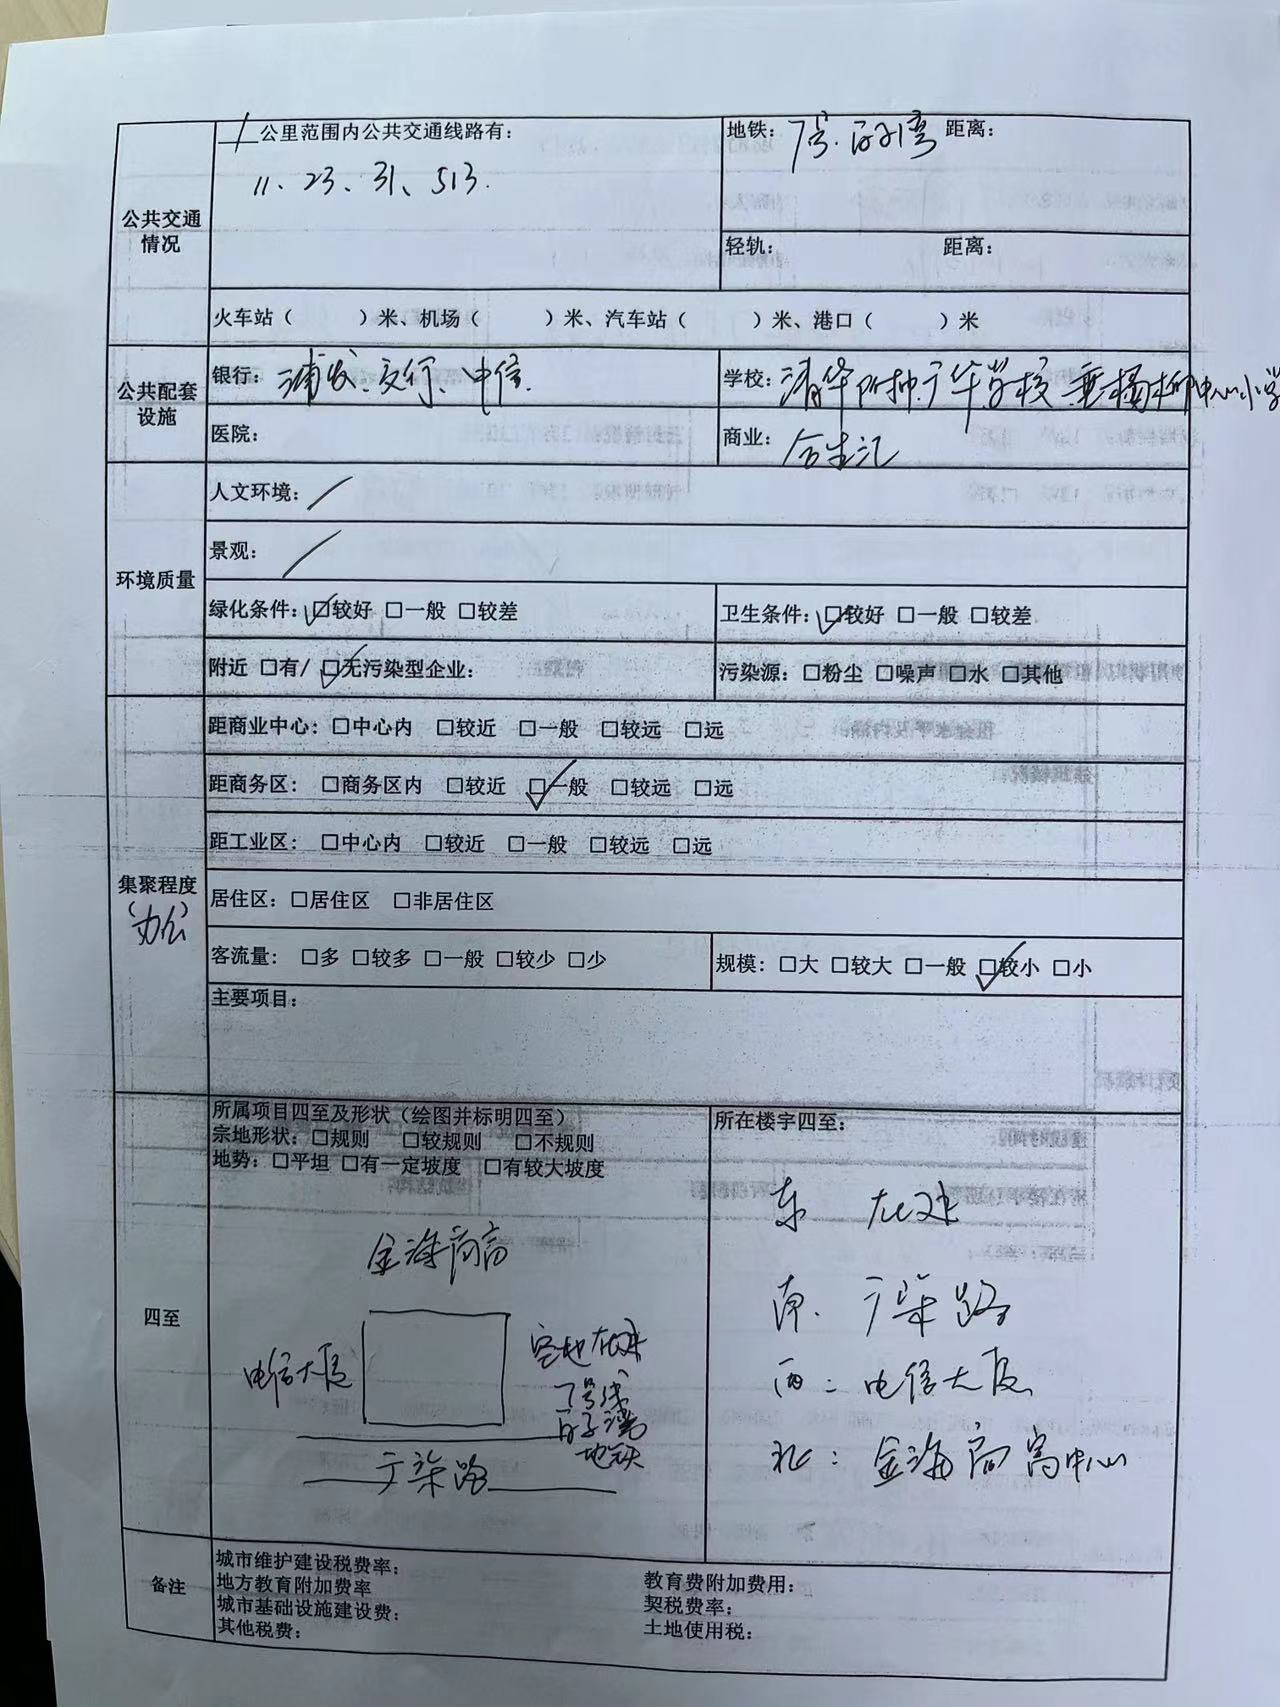 一公里范围内公共交通线路有:
11、23、31、513.
地铁: 7号.百子湾 距离:
公共交通
情况
轻轨: 距离:
火车站（ ）米、机场（ ）米、汽车站（ ）米、港口（ ）米
公共配套
设施
银行: 浦发、交行、中信
学校: 清华附中广华学校 垂杨柳中心小学
医院:
商业: 合生汇
环境质量
人文环境: /
景观: /
绿化条件: ☑较好 □一般 □较差
卫生条件: ☑较好 □一般 □较差
附近 □有/ ☑无污染型企业:
污染源: □粉尘 □噪声 □水 □其他
集聚程度
（办公）
距商业中心: □中心内 □较近 □一般 □较远 □远
距商务区: □商务区内 □较近 ☑一般 □较远 □远
距工业区: □中心内 □较近 □一般 □较远 □远
居住区: □居住区 □非居住区
客流量: □多 □较多 □一般 □较少 □少
规模: □大 □较大 □一般 ☑较小 □小
主要项目:
四至
所属项目四至及形状（绘图并标明四至）
宗地形状: □规则 □较规则 □不规则
地势: □平坦 □有一定坡度 □有较大坡度
金海商富
电信大厦
空地在建
7号线
百子湾
地铁
广渠路
所在楼宇四至:
东 在建
南. 广渠路
西: 电信大厦
北: 金海商富中心
备注
城市维护建设税费率:
地方教育附加费率
城市基础设施建设费:
其他税费:
教育费附加费用:
契税费率:
土地使用税: